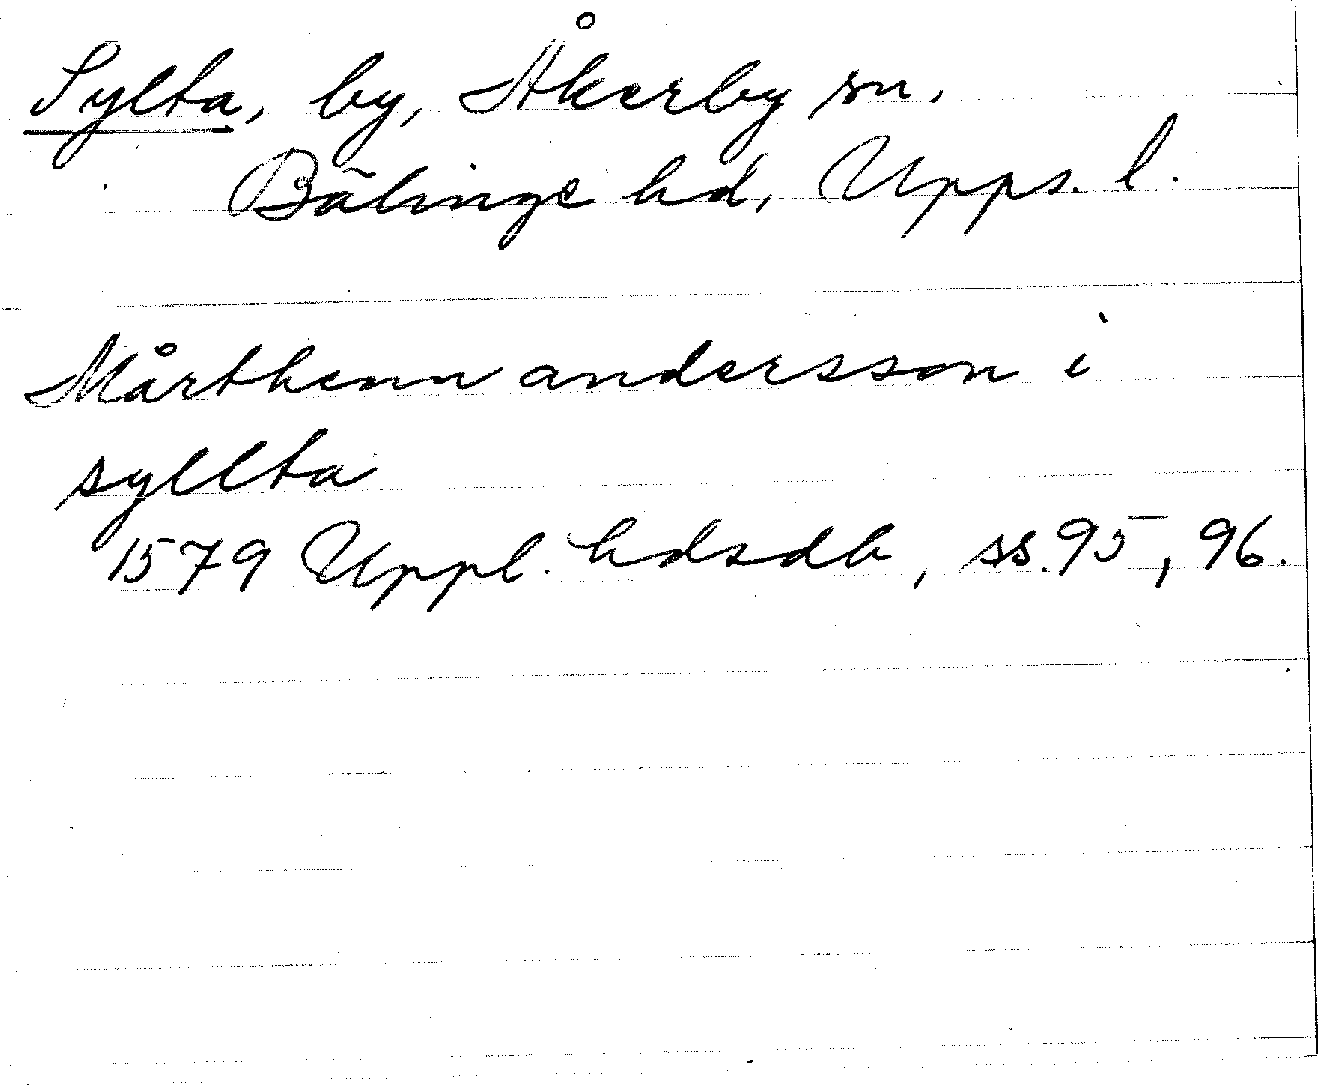 Sylta, by, Åkerby sn.
Bälinge hd, Upps. l.
Mårthenn andersson i
syllta
1579 Uppl. hdsdb, ss. 95, 96.